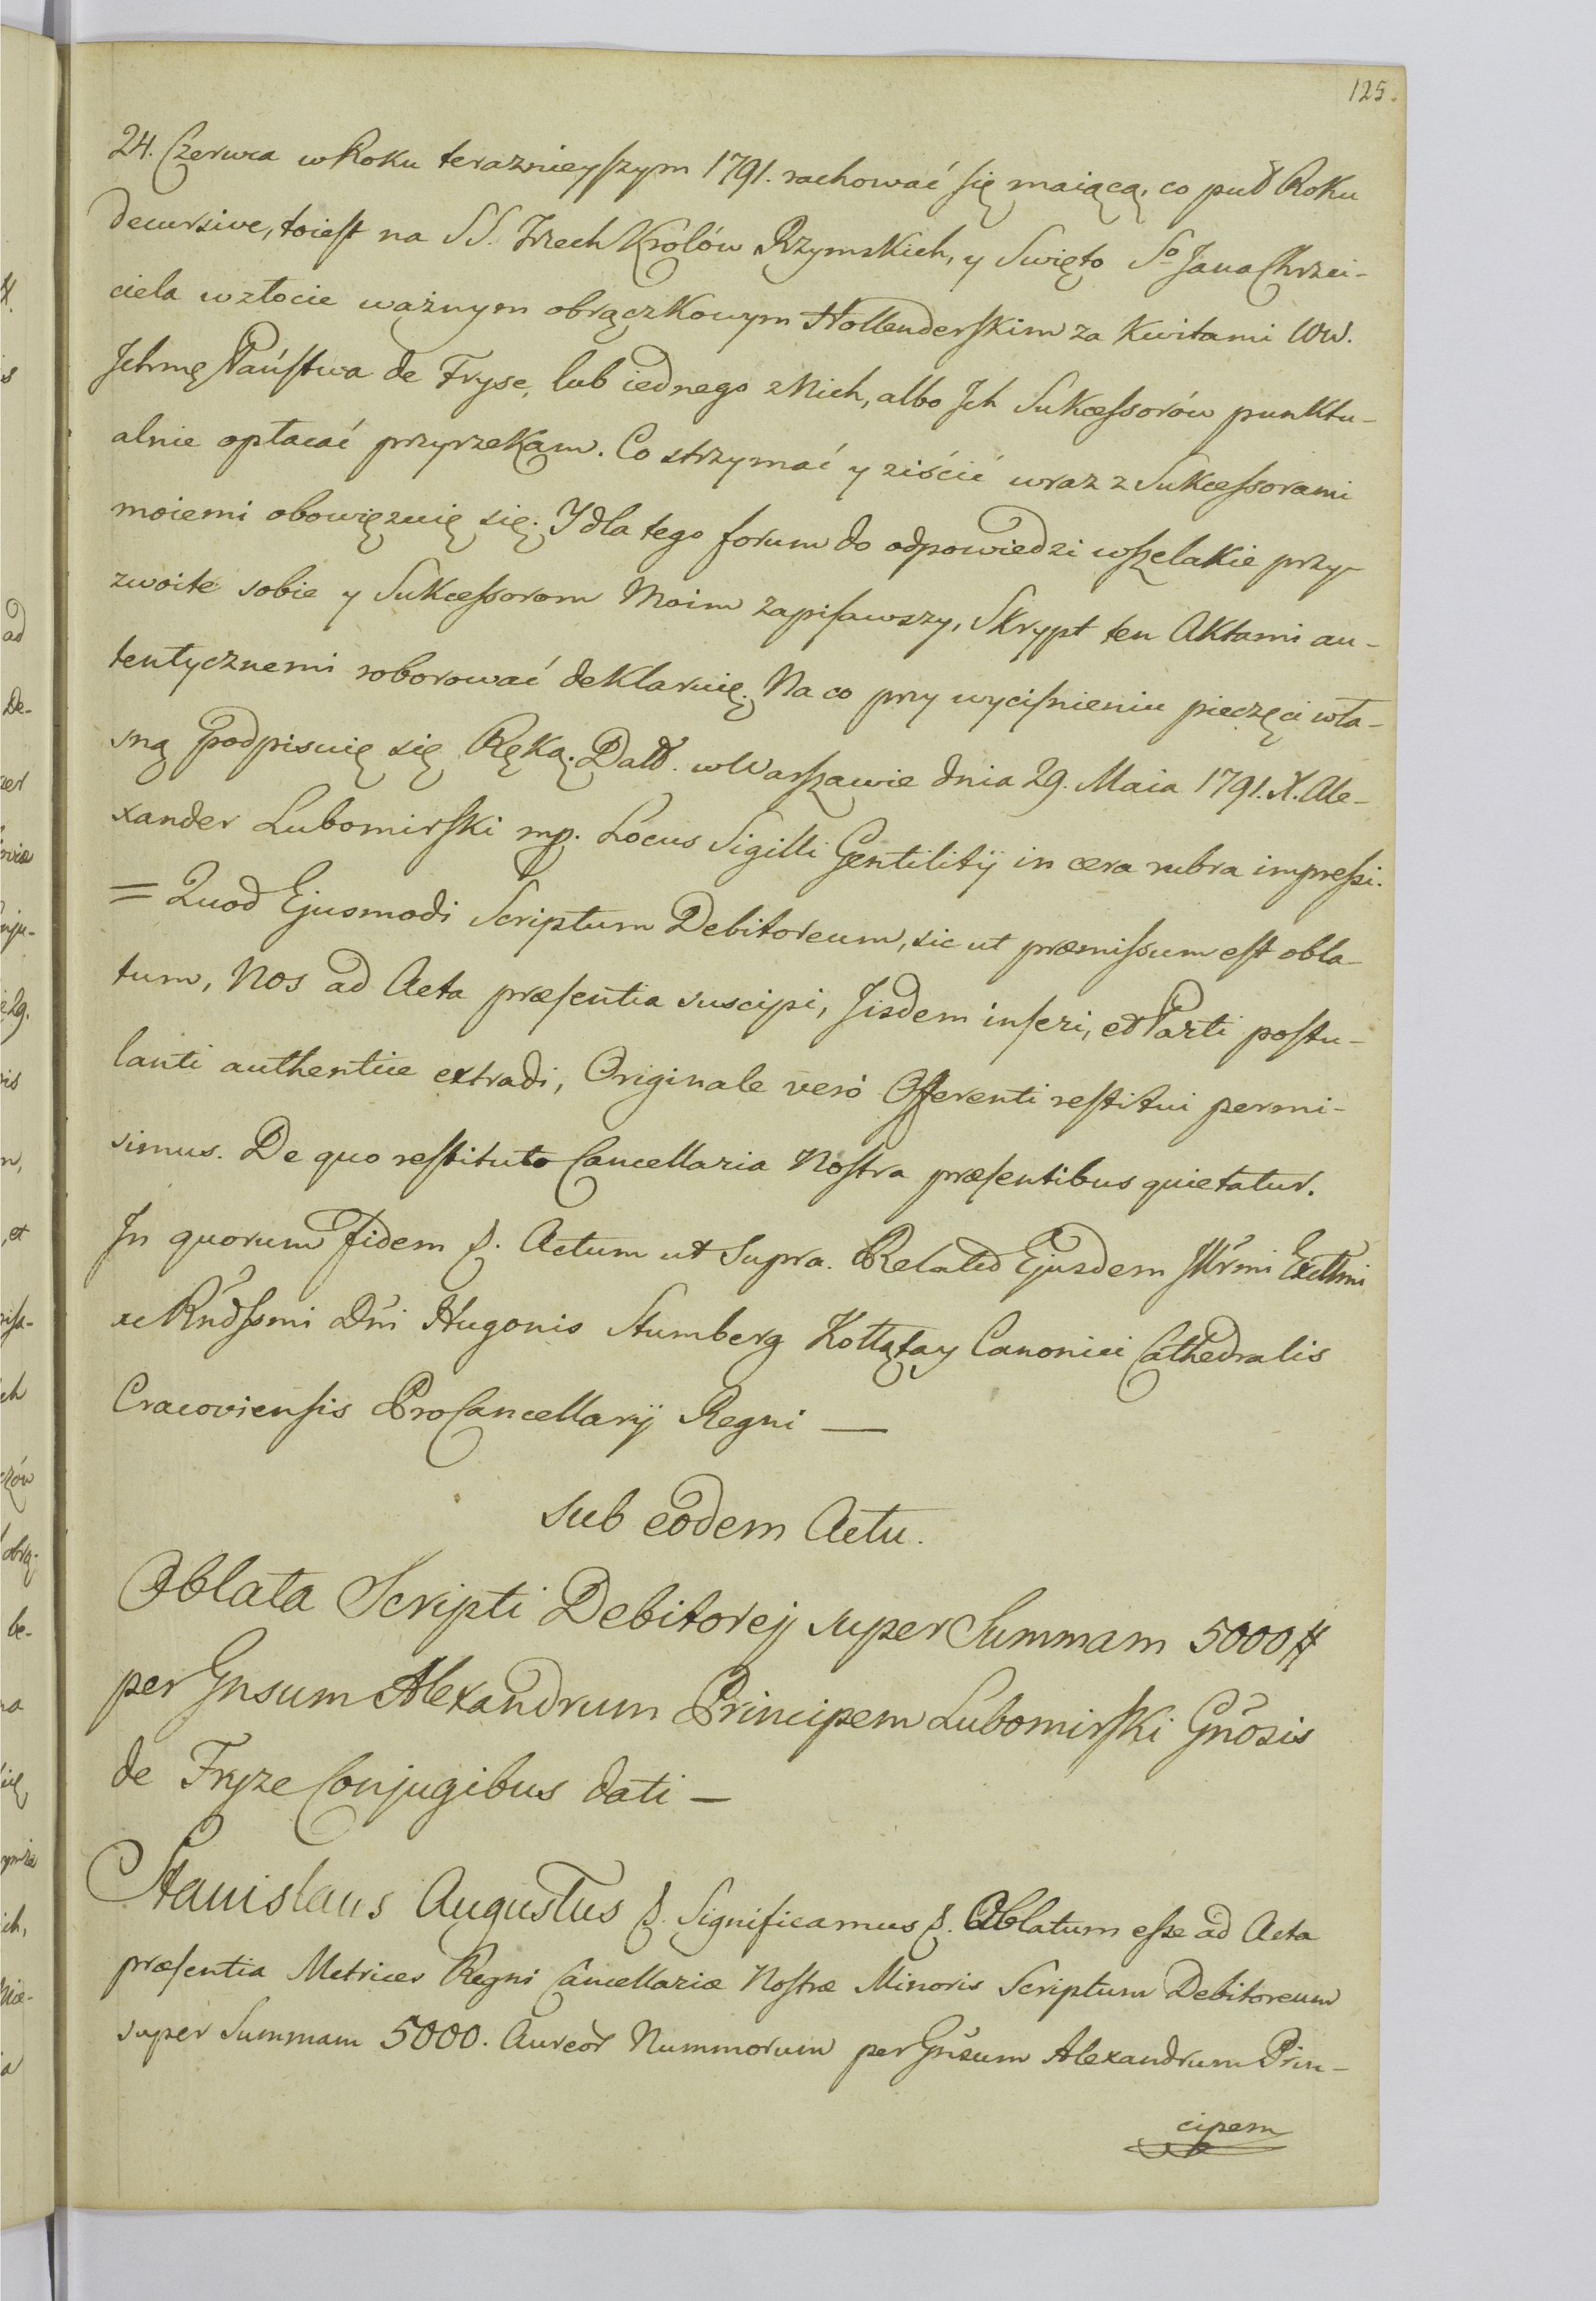 125.
24. Czerwca w Roku teraznieyszym 1791. rachować się maiącą, co puł Roku
decursive, toiest na SS. Trzech Krolów Rzymskich, y Swięto So Jana Chrzci-
ciela w złocie ważnym obrączkowym Hollenderskim za Kwitami WW.
Jchmę Państwa de Fryse, lub iednego z Nich, albo Jch Sukcessorów punktu-
alnie opłacać przyrzekam. Co strzymać y ziścić wraz z Sukcessorami
moiemi obowięzuię się. Y dla tego forum do odpowiedzi wszelakie przy-
zwoite sobie y Sukcessorom Moim zapisawszy, Skrypt ten Aktami au-
tentycznemi roborować deklaruię. Na co przy wycisnieniu pieczęci wła-
sną podpisuię się Ręką. Datt. w Warszawie dnia 29. Maia 1791. X. Ale-
xander Lubomirski mp. Locus Sigilli Gentilitij in cera rubra impressi.
= Quod Ejusmodi Scriptum Debitoreum, sic ut præmissum est obla-
tum, Nos ad Acta præsentia suscipi, Jisdem inseri, et Parti postu-
lanti authentice extradi, Originale verò Offerenti restitui permi-
simus. De quo restituto Cancellaria Nostra præsentibus quietatur.
In quorum Fidem p. Actum ut Supra. Relatio Ejusdem Jllrmi Excllmi
ac Rndssmi Dni Hugonis Stumberg Kołłątay Canonici Cathedralis
Cracoviensis ProCancellarij Regni —
Sub eodem Actu.
Oblata Scripti Debitorej super Summam 5000 #
per Gnsum Alexandrum Principem Lubomirski Gnosis
de Fryze Conjugibus dati —
Stanislaus Augustus p. Significamus p. Oblatum esse ad Acta
præsentia Metrices Regni Cancellariæ Nostræ Minoris Scriptum Debitoreum
super Summam 5000. Aureor Nummorum per Gnsum Alexandrum Prin-
cipem